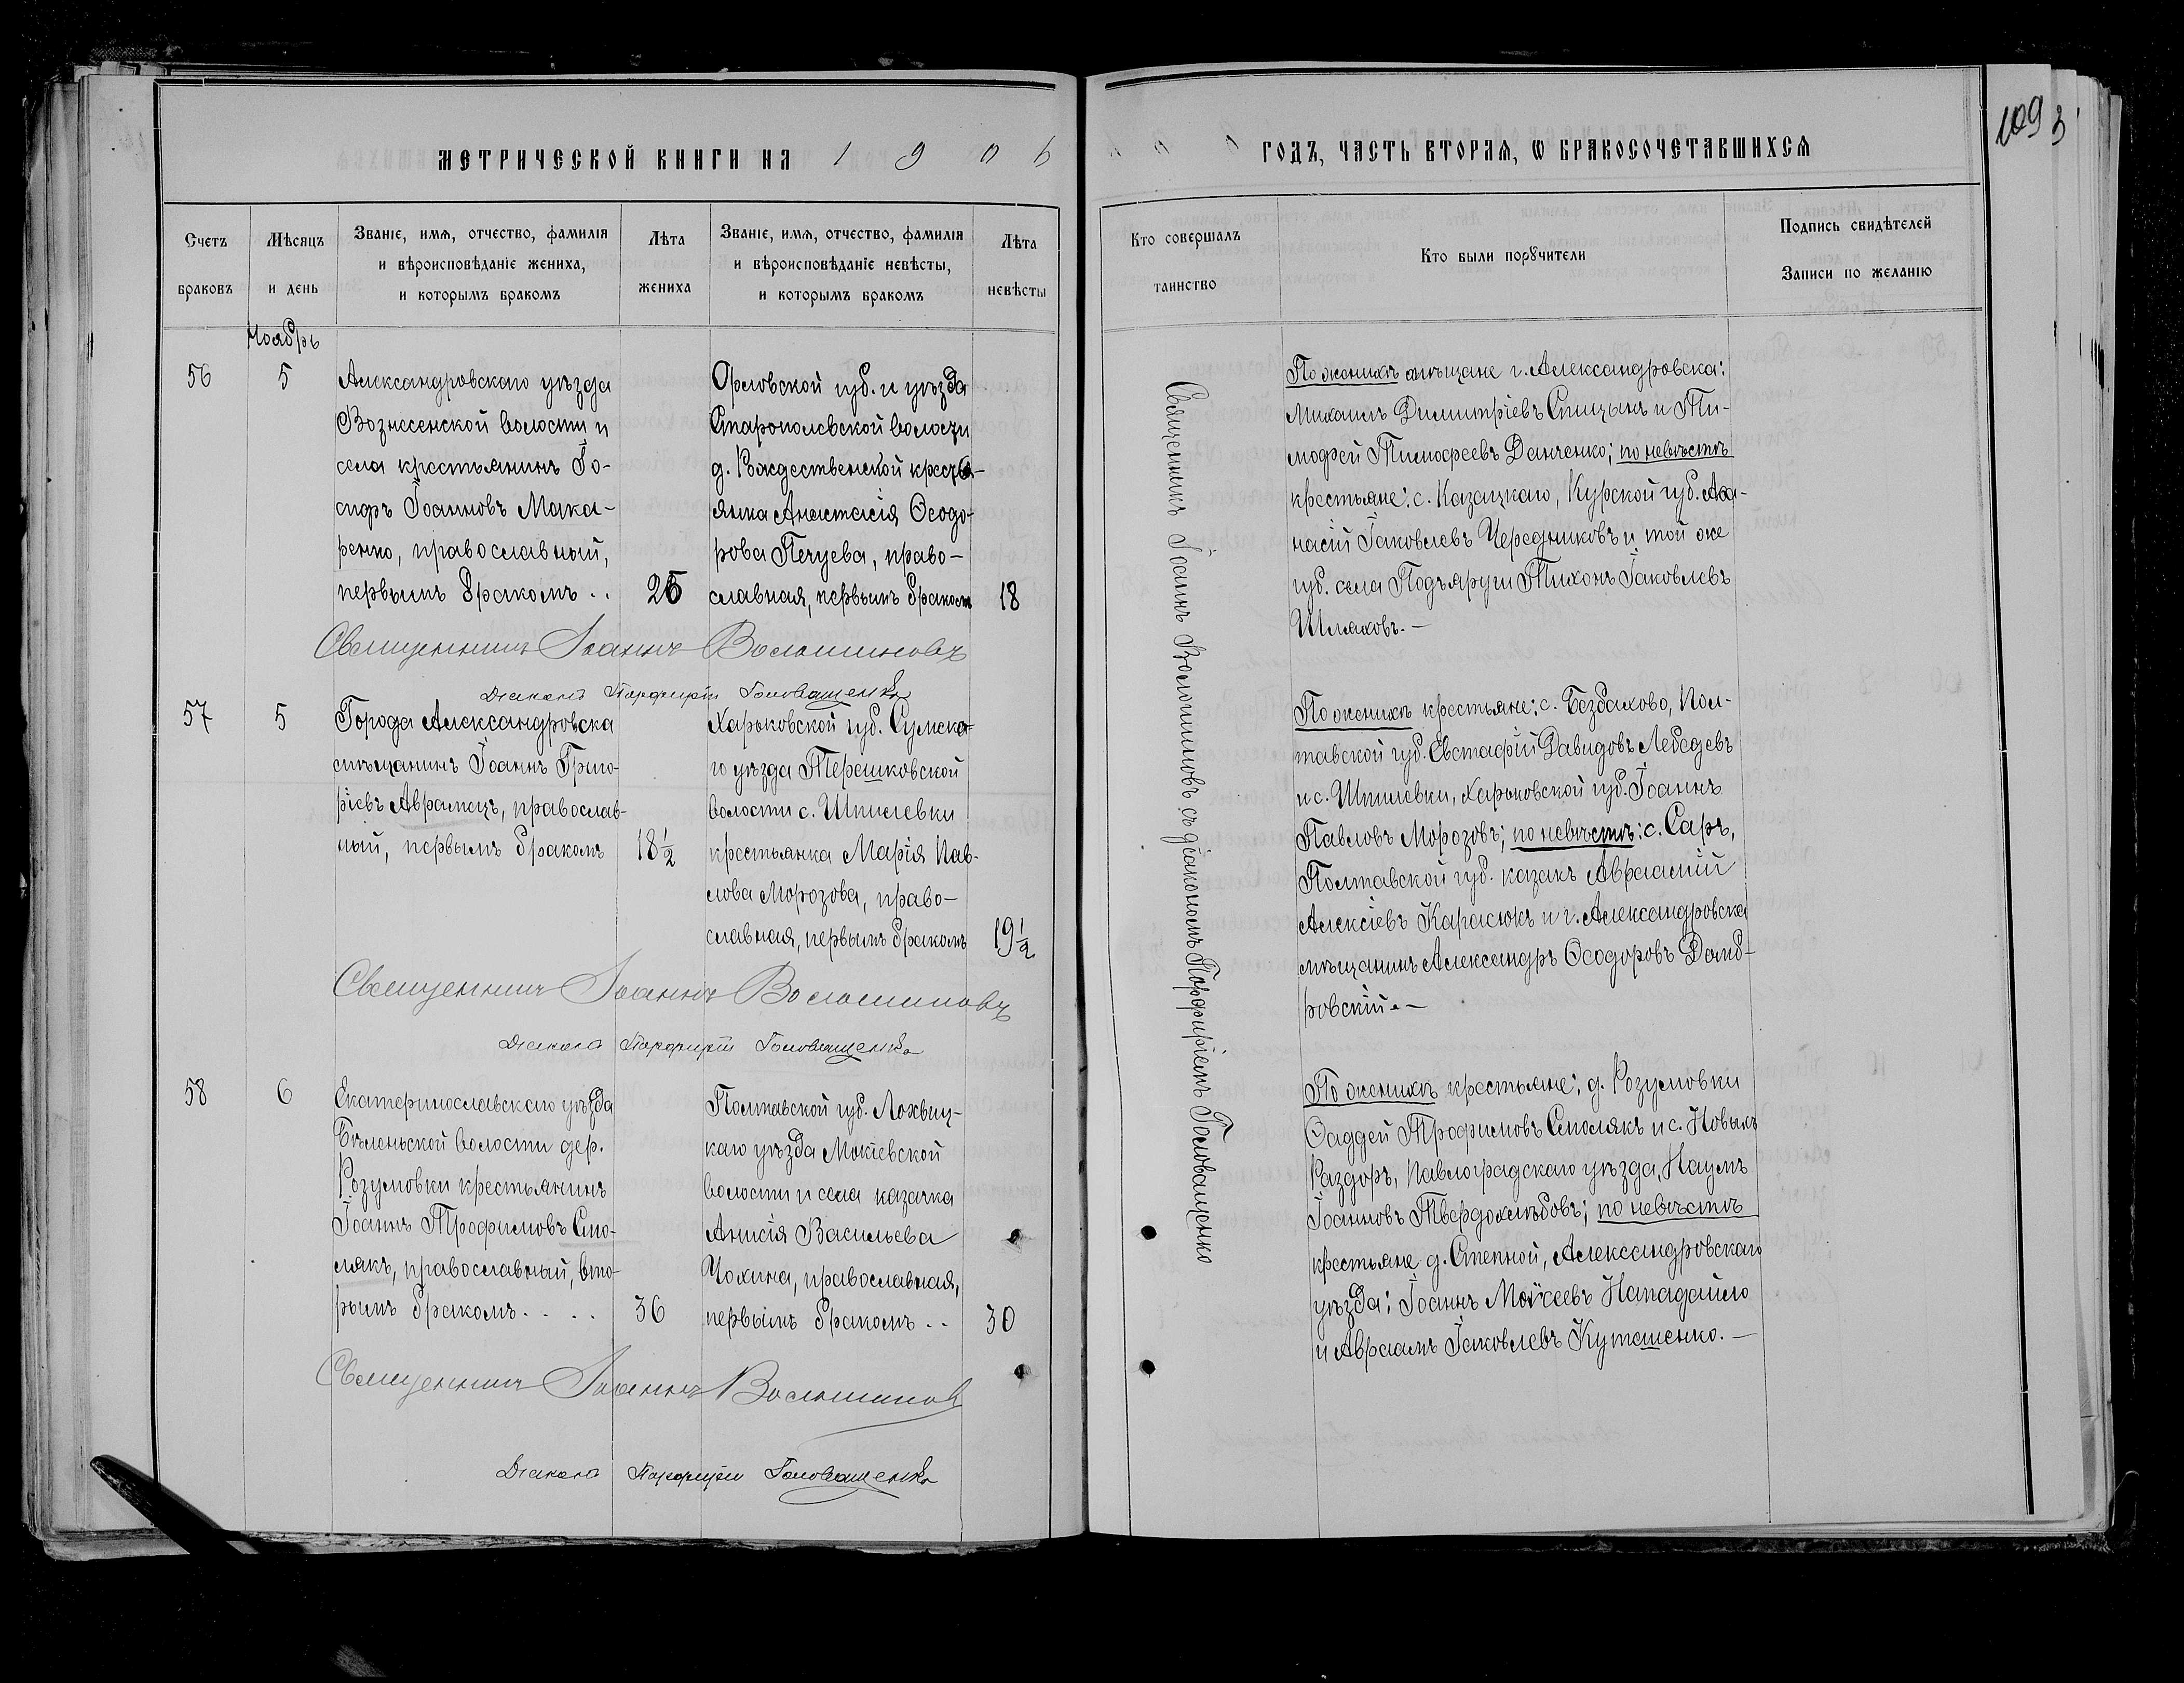 МЕТРИЧЕСКОЙ КНИГИ НА 1906
Счетъ браковъ
Мѣсяцъ и день
Званіе, имя, отчество, фамилія
и вѣроисповѣданіе жениха,
и которымъ бракомъ
Лѣта жениха
Званіе, имя, отчество, фамилія
и вѣроисповѣданіе невѣсты,
и которымъ бракомъ
Лѣта невѣсты
Ноябрь
56
5
Александровскаго уѣзда
Вознесенской волости и
села крестьянинъ Іо-
сифъ Іоанновъ Мака-
ренко, православный,
первымъ бракомъ..
Орловской губ. и уѣзда
волости
д. Рождественской кресть-
янка Анастасія Ѳеодо-
рова Печуева, право-
славная, первымъ бракомъ
18
Священникъ Іоаннъ Волошиновъ
Діаконъ Порфирій Головащенко
57
5
Города Александровска
мѣщанинъ Іоаннъ Григо-
ріевъ Аврамецъ, православ-
ный, первымъ бракомъ
18½
Харьковской губ. Сумска-
го уѣзда Терешковской
волости с. Шпилевки
крестьянка Марія Пав-
лова Морозова, право-
славная, первымъ бракомъ
19½
Священникъ Іоаннъ Волошиновъ
Діаконъ Порфирій Головащенко
58
6
Екатеринославскаго уѣзда
Бѣленьской волости дер.
Розумовки крестьянинъ
Іоаннъ Трофимовъ Смо-
лякъ, православный, вто-
рымъ бракомъ....
36
Полтавской губ. Лохвиц-
каго уѣзда Мокіевской
волости и села казачка
Анисія Васильева
Чохина, православная,
первымъ бракомъ..
30
Священникъ Іоаннъ Волошиновъ
Діаконъ Порфирій Головащенко
1093
ГОДЪ, ЧАСТЬ ВТОРАЯ, Ѡ БРАКОСОЧЕТАВШИХСЯ
Кто совершалъ таинство
Кто были порꙋчители
Подпись свидѣтелей
Записи по желанію
Священникъ Іоаннъ Волошиновъ съ діакономъ Порфиріемъ Головащенко
По женихѣ мѣщане г. Александровска:
Михаилъ Димитріевъ Спицынъ и Ти-
мофей Тимофеевъ Данченко; по невѣстѣ
крестьяне: с. Казацкаго, Курской губ. Аѳа-
насій Іаковлевъ Чередниковъ и той же
губ. села Подъяруги Тихонъ Іаковлевъ
Шляховъ.—
По женихѣ крестьяне: с. Бездахово, Пол-
тавской губ. Евстафій Давидовъ Лебедевъ
и с. Шпилевки, Харьковской губ. Іоаннъ
Павловъ Морозовъ; по невѣстѣ: с. Саръ,
Полтавской губ. казакъ Авраамій
Алексіевъ Карасюкъ и г. Александровска
мѣщанинъ Александръ Ѳеодоровъ Домб-
ровскій.—
По женихѣ крестьяне: д. Розумовки
Ѳаддей Трофимовъ Смолякъ и с. Новыхъ
Раздоръ, Павлоградскаго уѣзда, Наумъ
Іоанновъ Твердохлѣбовъ; по невѣстѣ
крестьяне д. Степной, Александровскаго
уѣзда: Іоаннъ Моѵсеевъ Нападайло
и Авраамъ Іаковлевъ Куташенко.—